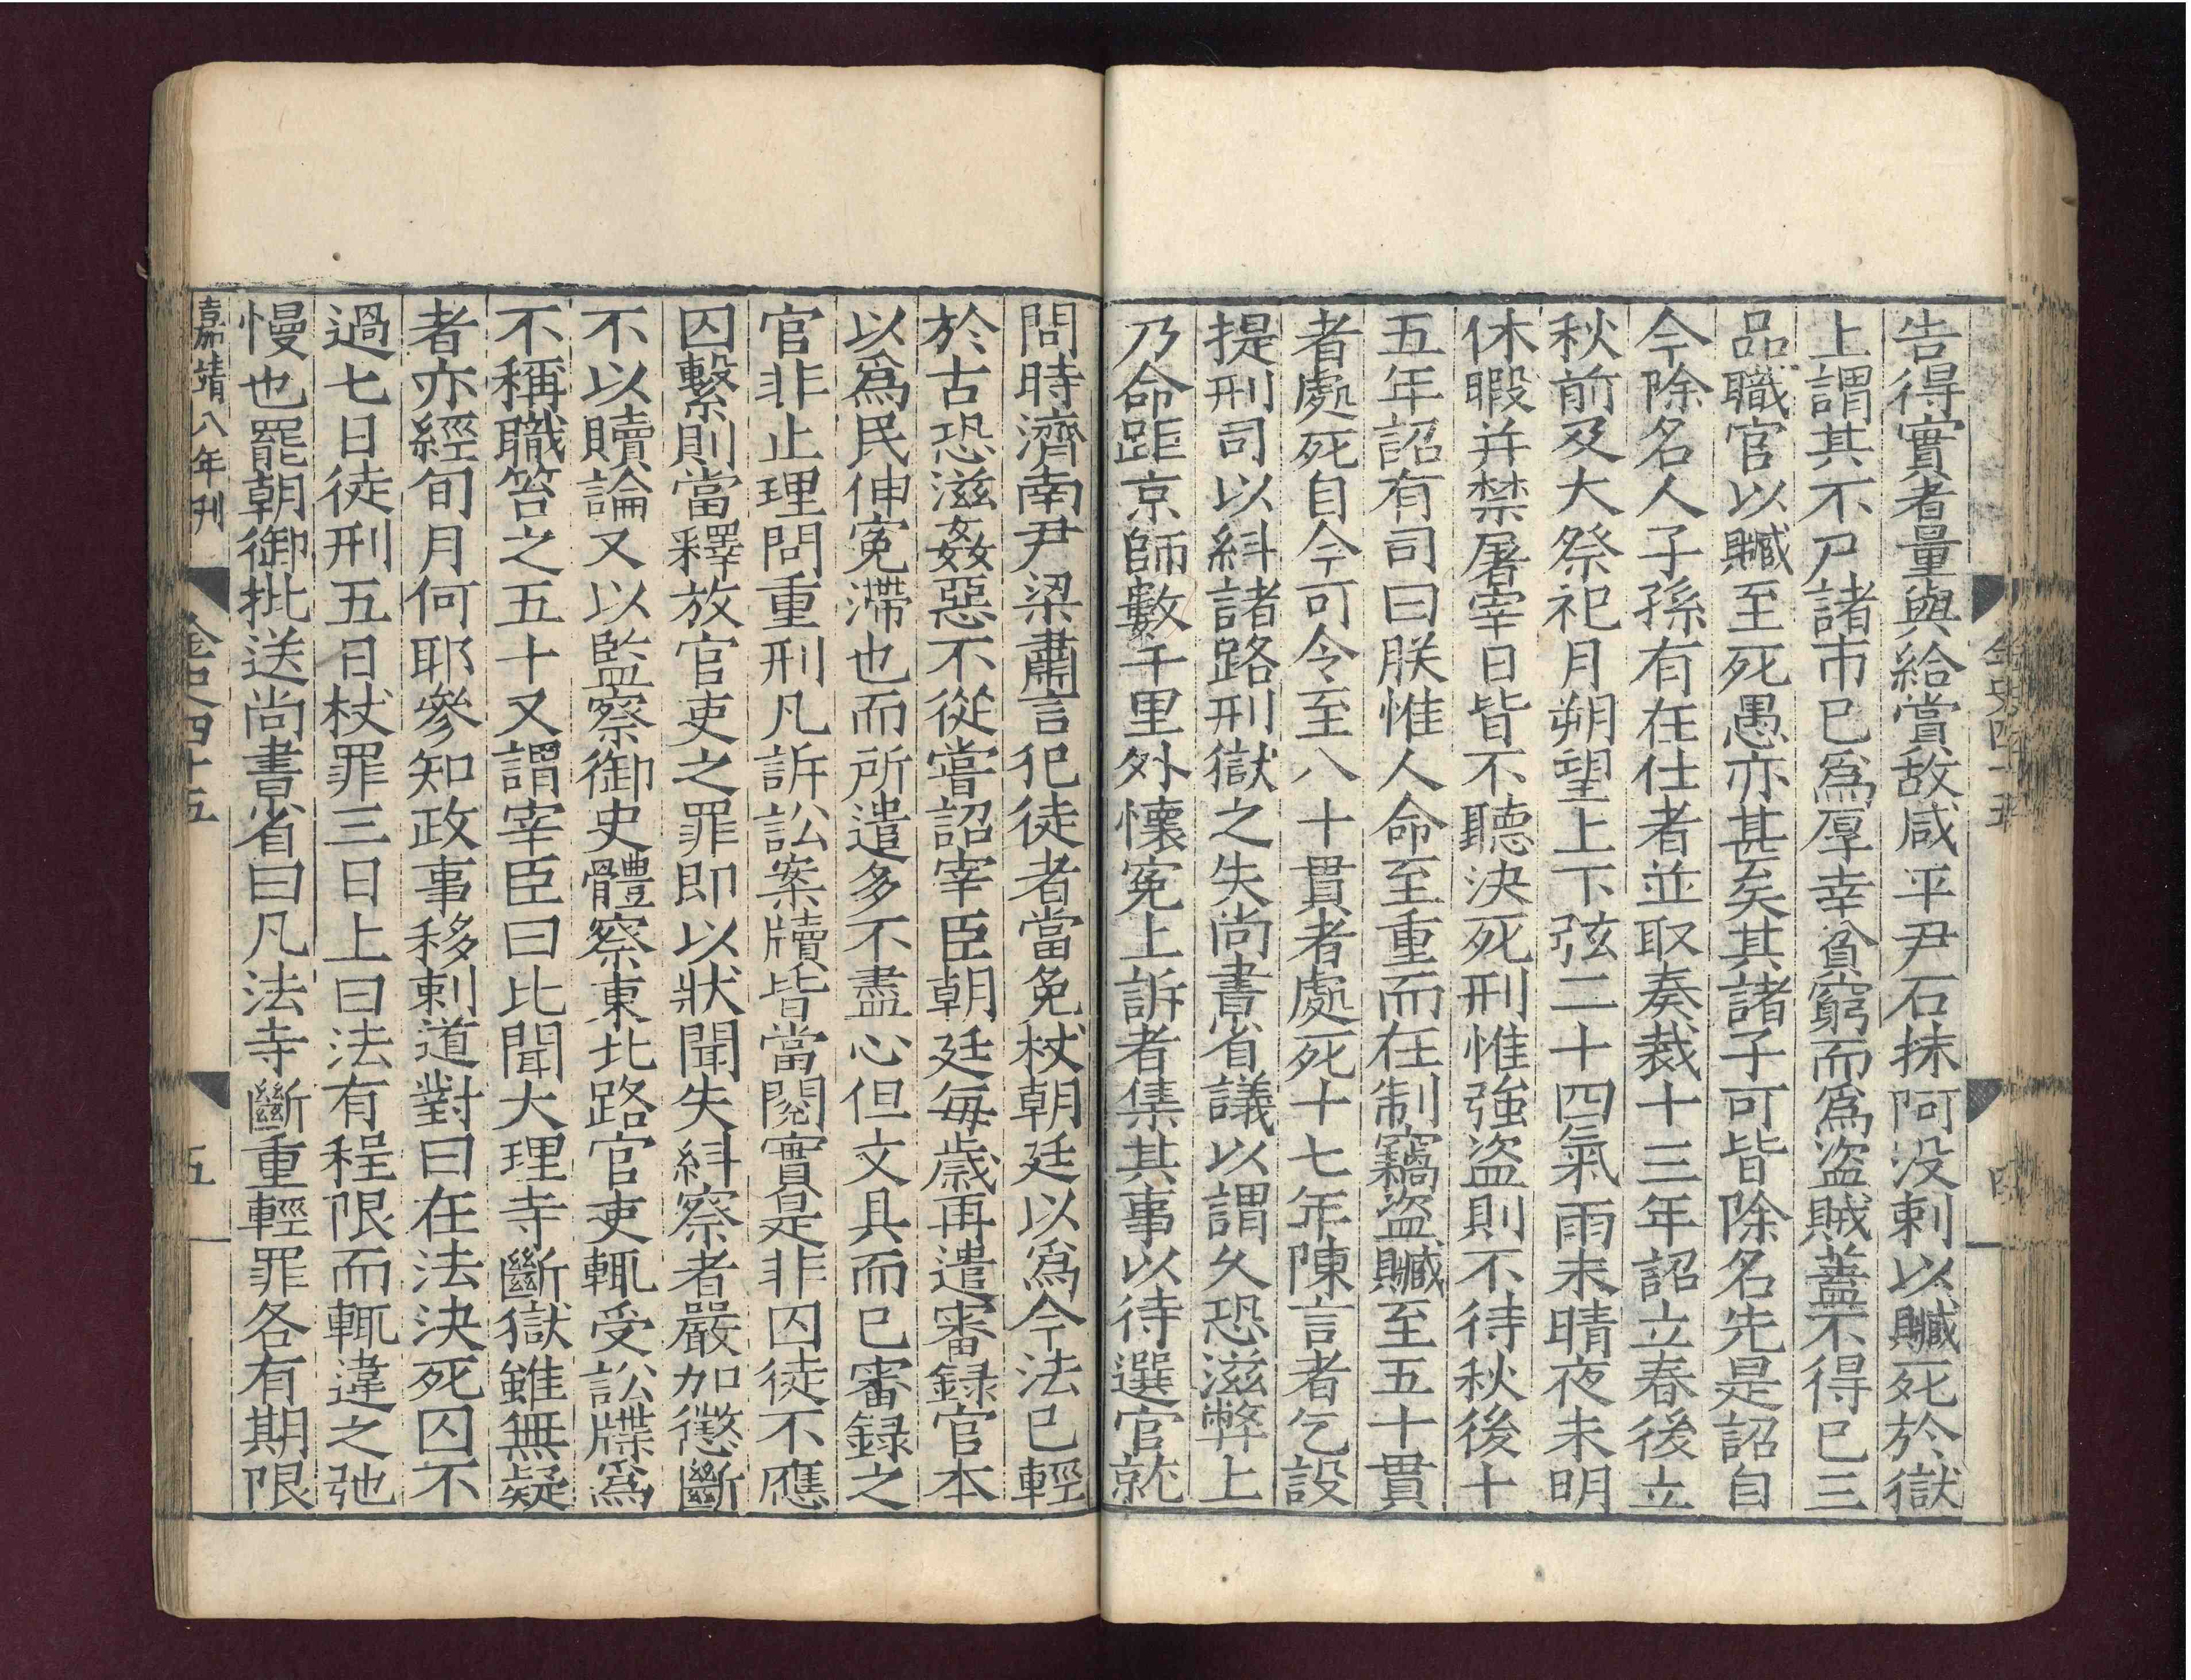 金史四十五
四
告得實者量與給賞敖咸平尹石抹阿没剌以贓死於獄
上謂其不尸諸市已爲厚幸貧窮而爲盜賊蓋不得已三
品職官以贓至死愚亦甚矣其諸子可皆除名先是詔自
今除名人子孫有在仕者並取奏裁十三年詔立春後立
秋前及大祭祀月朔望上下弦二十四氣雨未晴夜未明
休暇并禁屠宰日皆不聽決死刑惟強盜則不待秋後十
五年詔有司曰朕惟人命至重而在制竊盜贓至五十貫
者處死自今可令至八十貫者處死十七年陳言者乞設
提刑司以糾諸路刑獄之失尚書省議以謂久恐滋弊上
乃命距京師數千里外懷冤上訴者集其事以待選官就
問時濟南尹梁肅言犯徒者當免杖朝廷以爲今法已輕
於古恐滋姦惡不從嘗詔宰臣朝廷每歲再遣審録官本
以爲民伸冤滯也而所遣多不盡心但文具而已審録之
官非止理問重刑凡訴訟案牘皆當閱實是非囚徒不應
囚繫則當釋放官吏之罪即以狀聞失糾察者嚴加懲斷
不以贖論又以監察御史體察東北路官吏輒受訟牒爲
不稱職笞之五十又謂宰臣曰比聞大理寺斷獄雖無疑
者亦經旬月何耶參知政事移剌道對曰在法決死囚不
過七日徒刑五日杖罪三日上曰法有程限而輒違之弛
慢也罷朝御批送尚書省曰凡法寺斷重輕罪各有期限
嘉靖八年刊
金史四十五
五